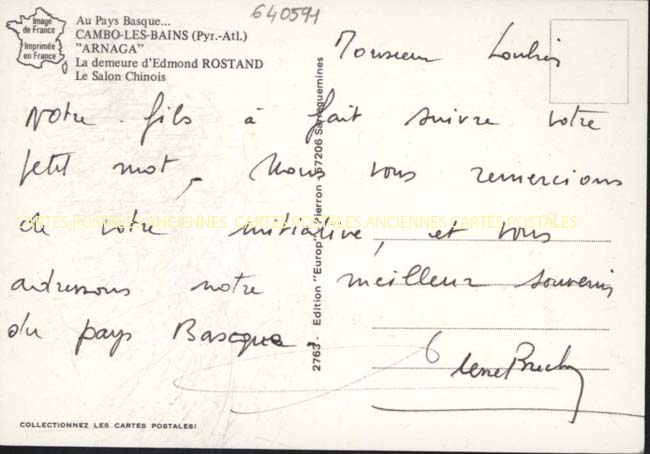 640591
Image
de France
Imprimée
en France
Au Pays Basque...
CAMBO-LES-BAINS (Pyr.-Atl.)
"ARNAGA"
La demeure d'Edmond ROSTAND
Le Salon Chinois
Monsieur
Notre fils à fait suivre votre
petit mot, Nous vous remercions
de votre initiative, et vous
adressons notre meilleur souvenir
du pays Basque.
2763 - Edition "Europ" Pierron - 57206 Sarreguemines
CARTES POSTALES ANCIENNES CARTES POSTALES ANCIENNES CARTES POSTALES
COLLECTIONNEZ LES CARTES POSTALES!